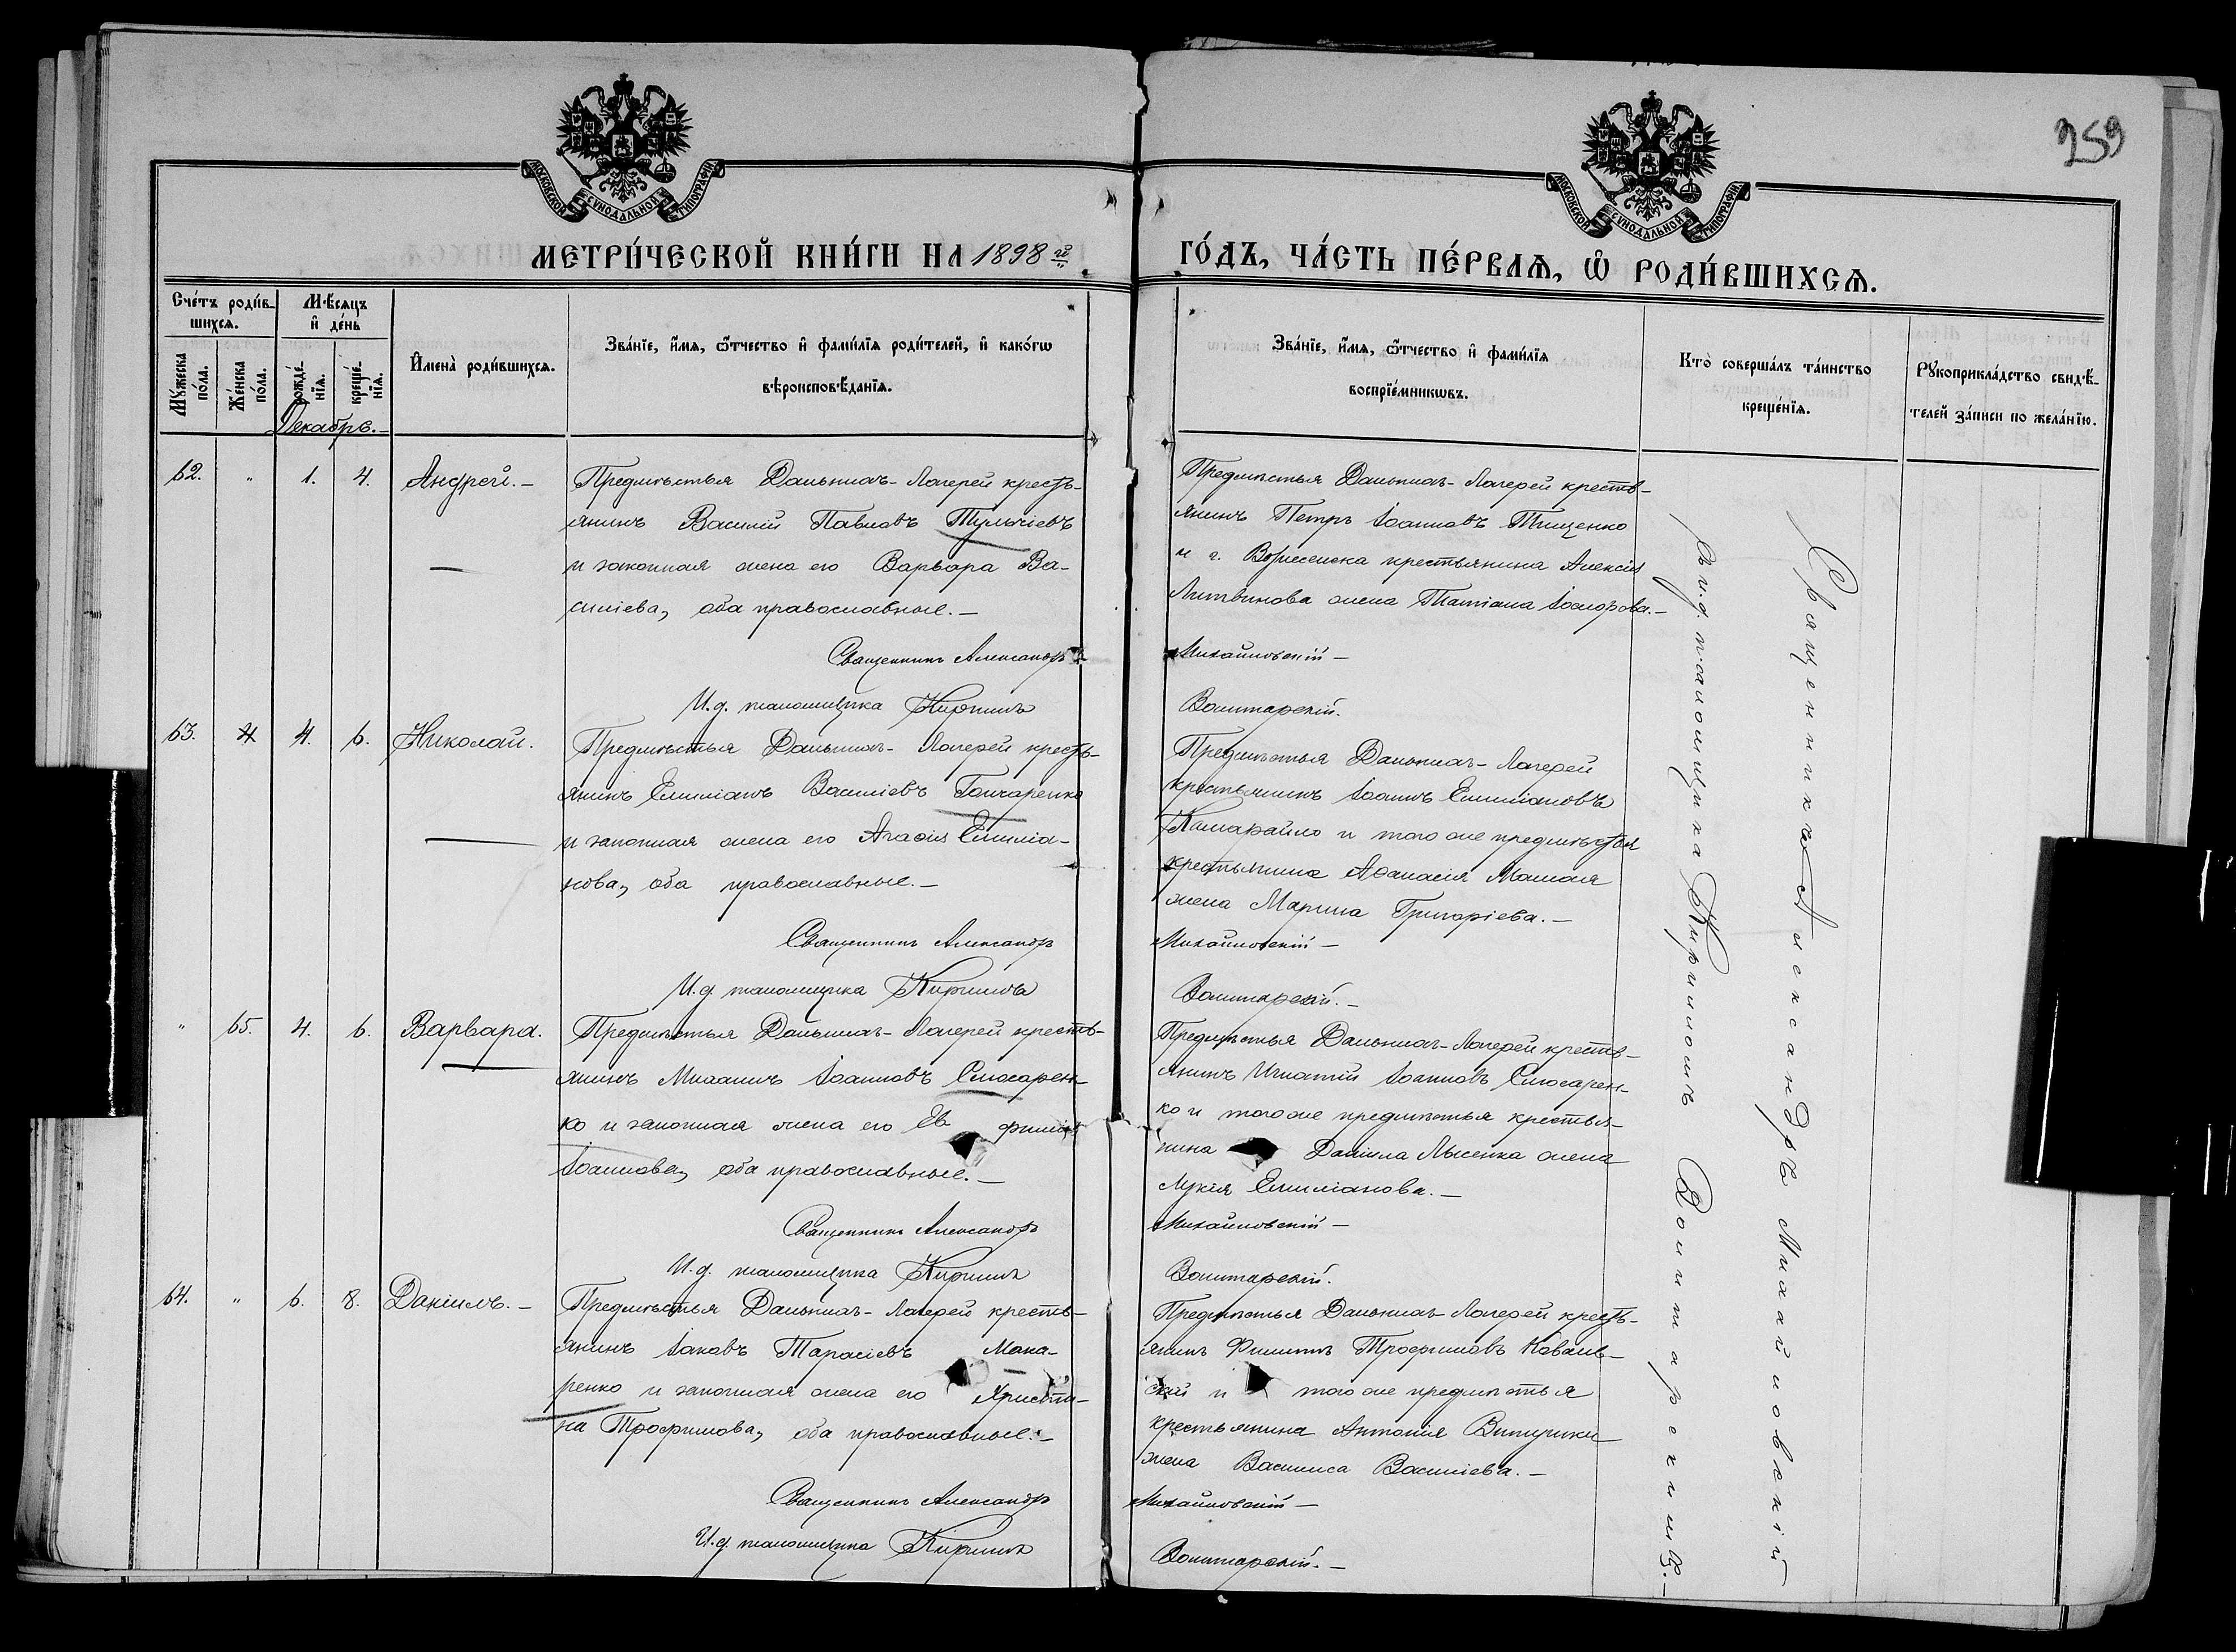 259
МОСКОВСКОЙ СѴНОДАЛЬНОЙ ТИПОГРАФІИ
МОСКОВСКОЙ СѴНОДАЛЬНОЙ ТИПОГРАФІИ
МЕТРИ́ЧЕСКОЙ КНИ́ГИ НА 1898 й
ГО́ДЪ, ЧА́СТЬ ПЕ́РВАѦ, Ѡ҆ РОДИ́ВШИХСѦ.
Сче́тъ роди́в-
шихсѧ.
Мꙋ́жеска по́ла.
Же́нска по́ла.
Мѣ́сѧцъ
и҆ де́нь
рожде́-
нїѧ.
креще́-
нїѧ.
Декабрь.-
И҆мена̀ роди́вшихсѧ.
Зва́нїе, и҆́мѧ, ѻ҆́тчество и҆ фами́лїѧ роди́телей, и҆ како́гѡ
вѣроисповѣ́данїѧ.
Зва́нїе, и҆́мѧ, ѻ҆́тчество и҆ фами́лїѧ
воспрїе́мникѡвъ.
Кто̀ соверша́лъ та́инство
креще́нїѧ.
Рꙋкоприкла́дство свидѣ́-
телей за́писи по жела́нїю.
62. " 1. 4. Андрей.-
Предмѣстья Дальнихъ-Лагерей кресть-
янинъ Василій Павловъ Тульчіевъ
и законная жена его Варвара Ва-
силіева, оба православные.-
Священникъ Александръ
И.д. псаломщика Кириллъ
Предмѣстья Дальнихъ-Лагерей кресть-
янинъ Петръ Іоанновъ Тищенко
и г. Вознесенска крестьянина Алексія
Литвинова жена Татіана Ісидорова.-
Михайловскій-
Волитарскій.
63. 4. 6. Николай.
Предмѣстья Дальнихъ-Лагерей кресть-
янинъ Емиліанъ Василіевъ Гончаренко
и законная жена его Агафія Емилiа-
нова, оба православные.-
Священникъ Александръ
И.д. псаломщика Кириллъ
Предмѣстья Дальнихъ-Лагерей
крестьянинъ Іоаннъ Емиліановъ
и того же предмѣстья
крестьянина Аѳанасія
жена Марина Григоріева.-
Михайловскій-
Волитарскій.-
" 65. 4. 6. Варвара.
Предмѣстья Дальнихъ-Лагерей кресть-
янинъ Михаилъ Іоанновъ Слюсарен-
ко и законная жена его Ев фимія
Іоаннова, оба православные.-
Священникъ Александръ
И.д. псаломщика Кириллъ
Предмѣстья Дальнихъ-Лагерей кресть-
янинъ Игнатій Іоанновъ Слюсарен-
ко и того же предмѣстья крестья-
нина Даніила Лысенка жена
Лукія Емиліанова.-
Михайловскій-
Волитарскій.
64. " 6. 8. Даніилъ.-
Предмѣстья Дальнихъ-Лагерей кресть-
янинъ Іаковъ Тарасіевъ Мака-
ренко и законная жена его Христи-
на Трофимова, оба православные.-
Священникъ Александръ
И.д. псаломщика Кириллъ
Предмѣстья Дальнихъ-Лагерей кресть-
янинъ Филиппъ Трофимовъ Коваль-
скій и того же предмѣстья
крестьянина Антонія
жена Василиса Василіева.-
Михайловскій-
Волитарскій.-
Священникъ Александръ Михайловскій
съ и.д. псаломщика Кирилломъ Волитарскимъ.-